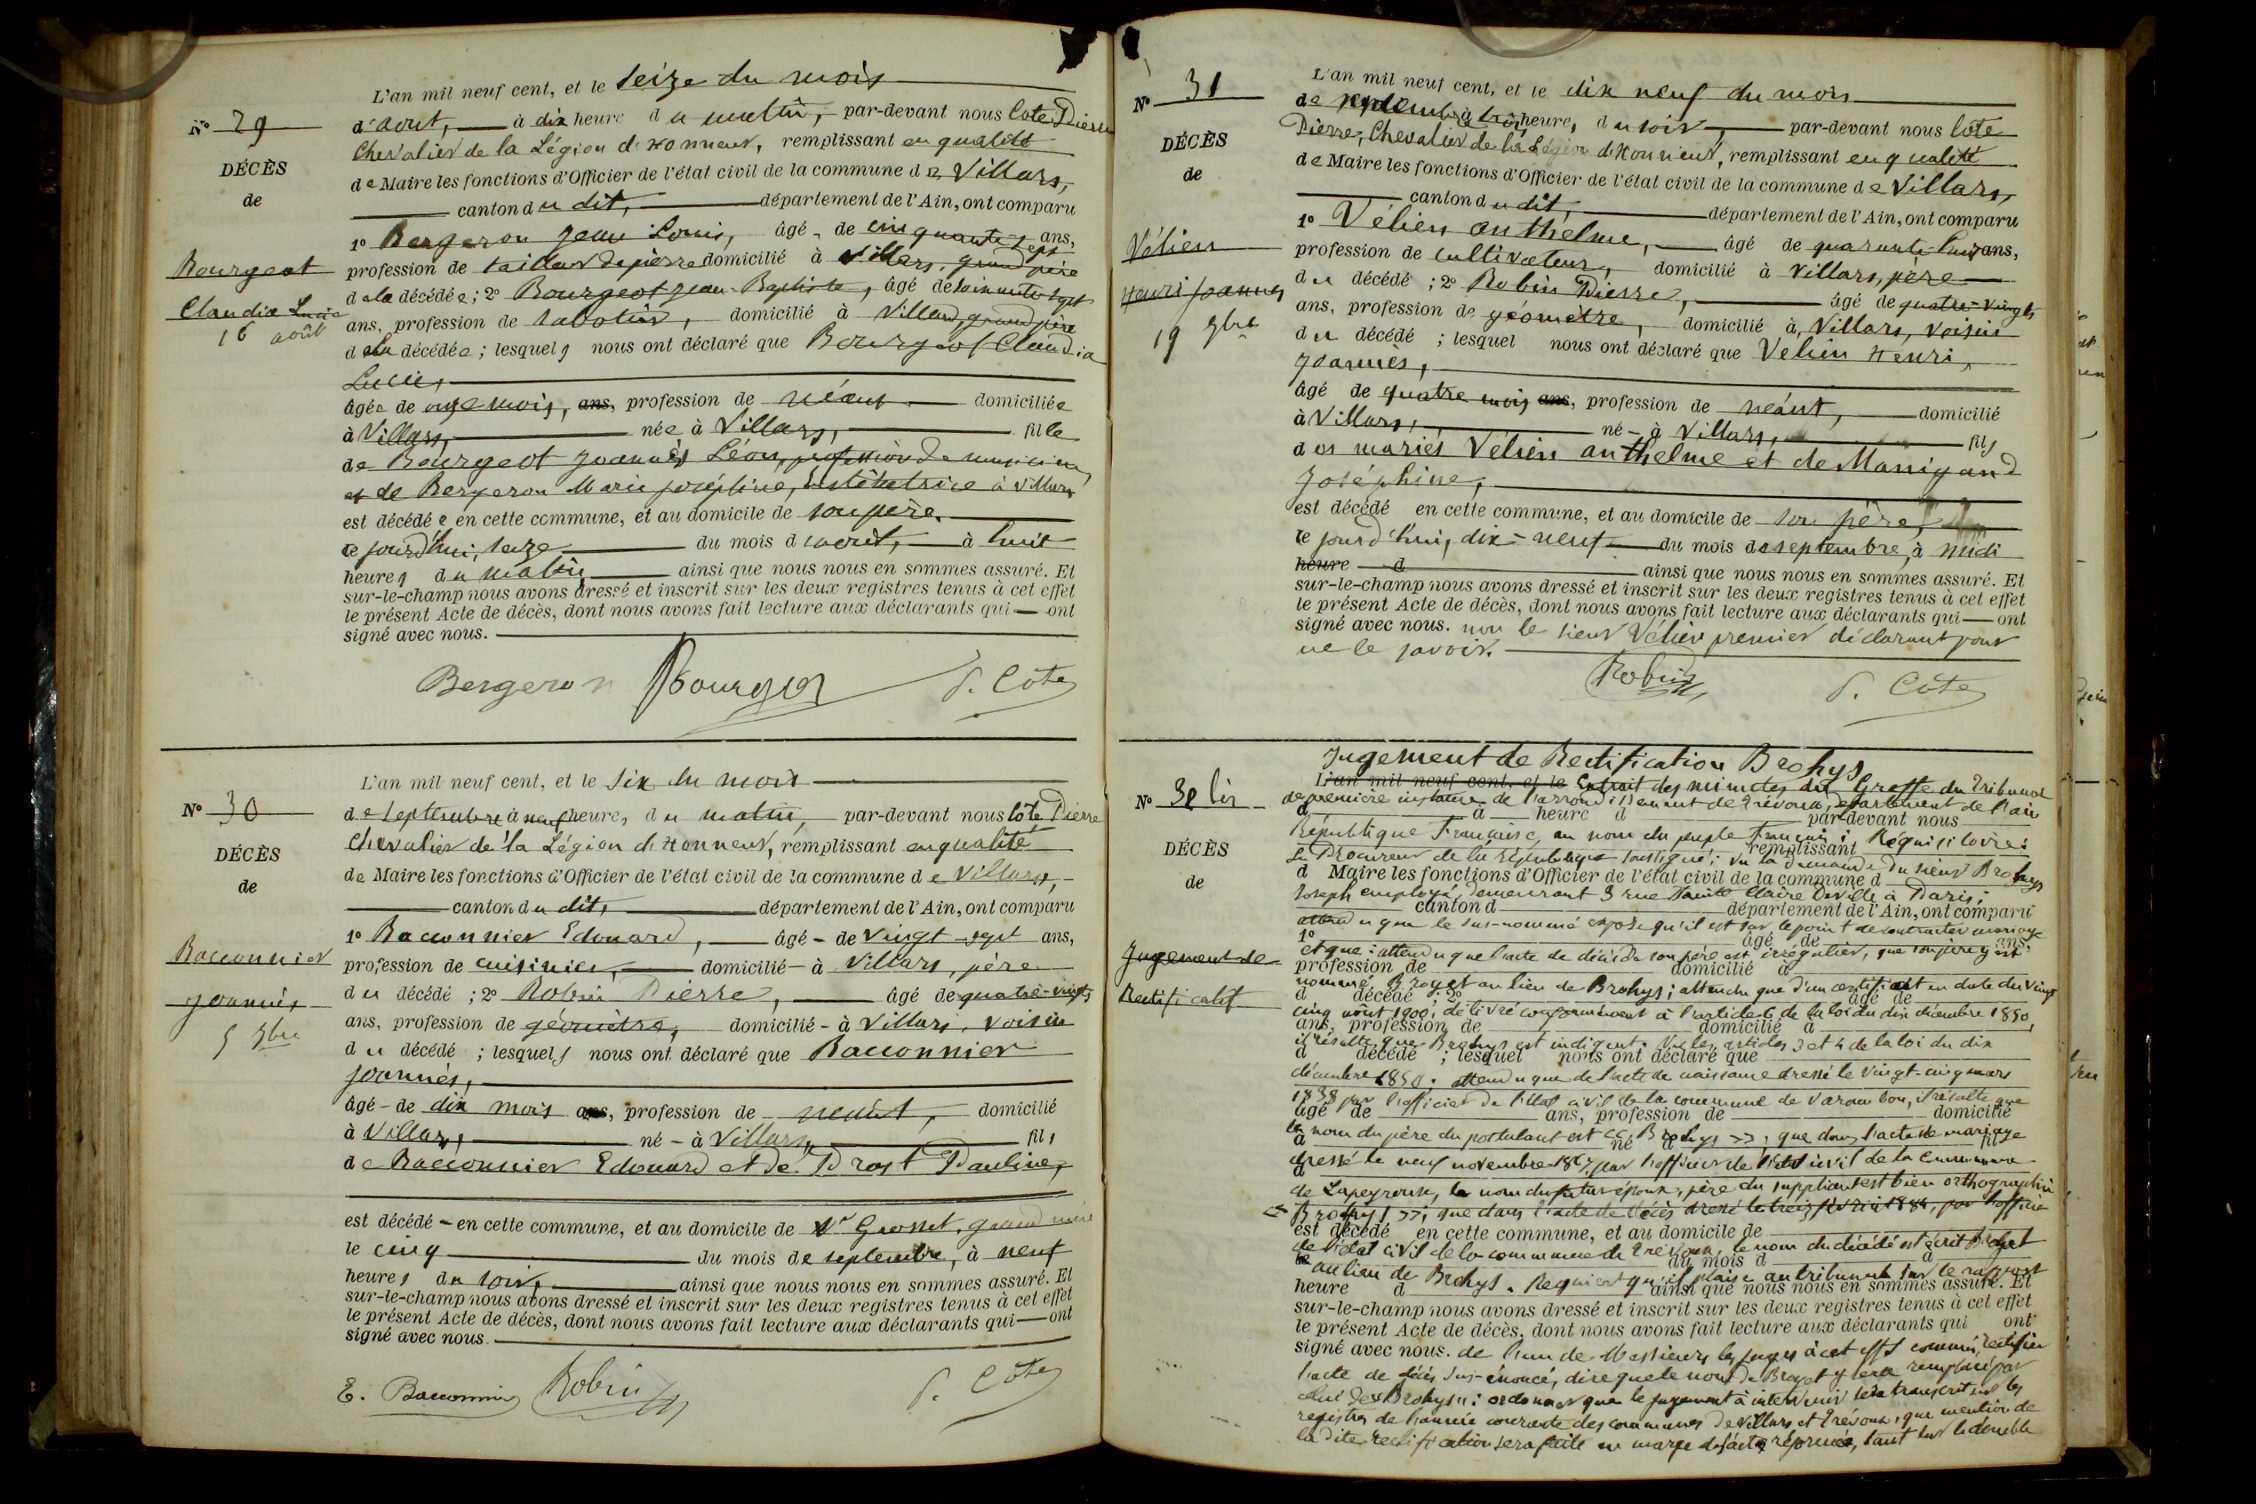 N° 29
DÉCÈS
de
Bourgeot
Claudia Lucie
16 août
L'an mil neuf cent, et le seize du mois
d'aout, à dix heure du matin, par-devant nous Cote Pierre
Chevalier de la Légion d'Honneur, remplissant en qualité
de Maire les fonctions d'Officier de l'état civil de la commune de Villars,
canton du dit, département de l'Ain, ont comparu
1° Bergeron Jean Louis, âgé de cinquante sept ans,
profession de tailleur de pierre domicilié à Villars, grand père
de la décédée; 2° Bourgeot Jean-Baptiste, âgé de soixante sept
ans, profession de sabotier, domicilié à Villars, grand père
de la décédée; lesquels nous ont déclaré que Bourgeot Claudia
Lucie,
âgée de onze mois, ans, profession de néant domiciliée
à Villars, née à Villars, fille
de Bourgeot Joannès Léon, profession de musicien,
et de Bergeron Marie Joséphine, institutrice à Villars
est décédée en cette commune, et au domicile de son père.
ce jourd'hui, seize du mois d'août, à huit
heures du matin ainsi que nous nous en sommes assuré. Et
sur-le-champ nous avons dressé et inscrit sur les deux registres tenus à cet effet
le présent Acte de décès, dont nous avons fait lecture aux déclarants qui ont
signé avec nous.
Bergeron Bourgeot P. Côte
N° 30
DÉCÈS
de
Bacconnier
Joannès
5 7bre
L'an mil neuf cent, et le six du mois
de septembre à neuf heures, du matin, par-devant nous Côte Pierre
Chevalier de la Légion d'Honneur, remplissant en qualité
de Maire les fonctions d'Officier de l'état civil de la commune de Villars,
canton du dit, département de l'Ain, ont comparu
1° Bacconnier Edouard, âgé de vingt-sept ans,
profession de cuisinier, domicilié à Villars, père
du décédé; 2° Robin Pierre, âgé de quatre-vingts
ans, profession de géomètre, domicilié à Villars, voisin
du décédé; lesquels nous ont déclaré que Bacconnier
Joannès,
âgé de dix mois ans, profession de néant, domicilié
à Villars, né à Villars, fils
de Bacconnier Edouard et de Prost Pauline,
est décédé en cette commune, et au domicile de Grosset, grand mère
le cinq du mois de septembre, à neuf
heures du soir, ainsi que nous nous en sommes assuré. Et
sur-le-champ nous avons dressé et inscrit sur les deux registres tenus à cet effet
le présent Acte de décès, dont nous avons fait lecture aux déclarants qui ont
signé avec nous.
E. Bacconnier Robin P. Côte
N° 31
DÉCÈS
de
Vélien
Henri Joannès
19 7bre
L'an mil neuf cent, et le dix neuf du mois
de septembre à trois heure, du soir, par-devant nous Cote
Pierre, Chevalier de la Légion d'Honneur, remplissant en qualité
de Maire les fonctions d'Officier de l'état civil de la commune de Villars,
canton du dit, département de l'Ain, ont comparu
1° Vélien Anthelme, âgé de quarante-huit ans,
profession de cultivateur, domicilié à Villars, père
du décédé; 2° Robin Pierre, âgé de quatre-vingts
ans, profession de géomètre, domicilié à Villars, voisin
du décédé; lesquel nous ont déclaré que Vélien Henri,
Joannès,
âgé de quatre mois ans, profession de néant, domicilié
à Villars, né à Villars, fils
des mariés Vélien Anthelme et de Manigand
Joséphine,
est décédé en cette commune, et au domicile de son père,
ce jourd'hui, dix-neuf du mois de septembre, à midi
heure d ainsi que nous nous en sommes assuré. Et
sur-le-champ nous avons dressé et inscrit sur les deux registres tenus à cet effet
le présent Acte de décès, dont nous avons fait lecture aux déclarants qui ont
signé avec nous. non le sieur Vélien premier déclarant pour
ne le savoir.
Robin P. Côte
Jugement de Rectification Brohys
N° 30 bis
DÉCÈS
de
Jugement de
Rectificatif
L'an mil neuf cent, et le Extrait des minutes du Greffe du Tribunal
de première instance de l'arrondissement de Trévoux, département de l'Ain
d à heure d par-devant nous
République Française, au nom du peuple Français; Réquisitoire:
remplissant
Le Procureur de la République soussigné; vu la demande du sieur Brohys
d Maire les fonctions d'Officier de l'état civil de la commune d
Joseph employé demeurant 3 rue Sainte Claire Deville à Paris;
canton d département de l'Ain, ont comparu
attendu que le sus-nommé expose qu'il est sur le point de contracter mariage
1° âgé de ans,
et que: attendu que l'acte de décès de son père est irrégulier, que son père y est
profession de domicilié à
nommé Broyet au lieu de Brohys; attendu que d'un certificat en date du vingt
d décédé; 2° âgé de
cinq août 1900, délivré conformément à l'article 6 de la loi du dix décembre 1850,
ans, profession de domicilié à
il résulte que Brohys est indigent. Vu les articles 3 et 4 de la loi du dix
d décédé; lesquel nous ont déclaré que
décembre 1850; attendu que de l'acte de naissance dressé le vingt-cinq mars
1838 par l'officier de l'état civil de la commune de Varambon, il résulte que
âgé de ans, profession de domicilié
le nom du père du postulant est « Brohys », que dans l'acte de mariage
à né à fil
dressé le neuf novembre 1867 par l'officier de l'état civil de la commune
de Lapeyrouse, le nom du futur époux, père du suppliant est bien orthographié
« Brohys »; que dans l'acte de décès dressé le treize février 1884, par l'officier
est décédé en cette commune, et au domicile de
de l'état civil de la commune de Trévoux, le nom du décédé est écrit Broyet
le du mois d à
au lieu de Brohys. Requiert qu'il plaise au tribunal sur le rapport
heure d ainsi que nous nous en sommes assuré. Et
sur-le-champ nous avons dressé et inscrit sur les deux registres tenus à cet effet
le présent Acte de décès, dont nous avons fait lecture aux déclarants qui ont
signé avec nous. de l'un de Messieurs les juges à cet effet commis, rectifier
l'acte de décès sus-énoncé, dire que le nom de Broyet y sera remplacé par
celui de « Brohys »: ordonner que le jugement à intervenir sera transcrit sur les
registres de l'année courante des communes de Villars et Trévoux, que mention de
la dite rectification sera faite en marge de l'acte réformé, tant sur le double